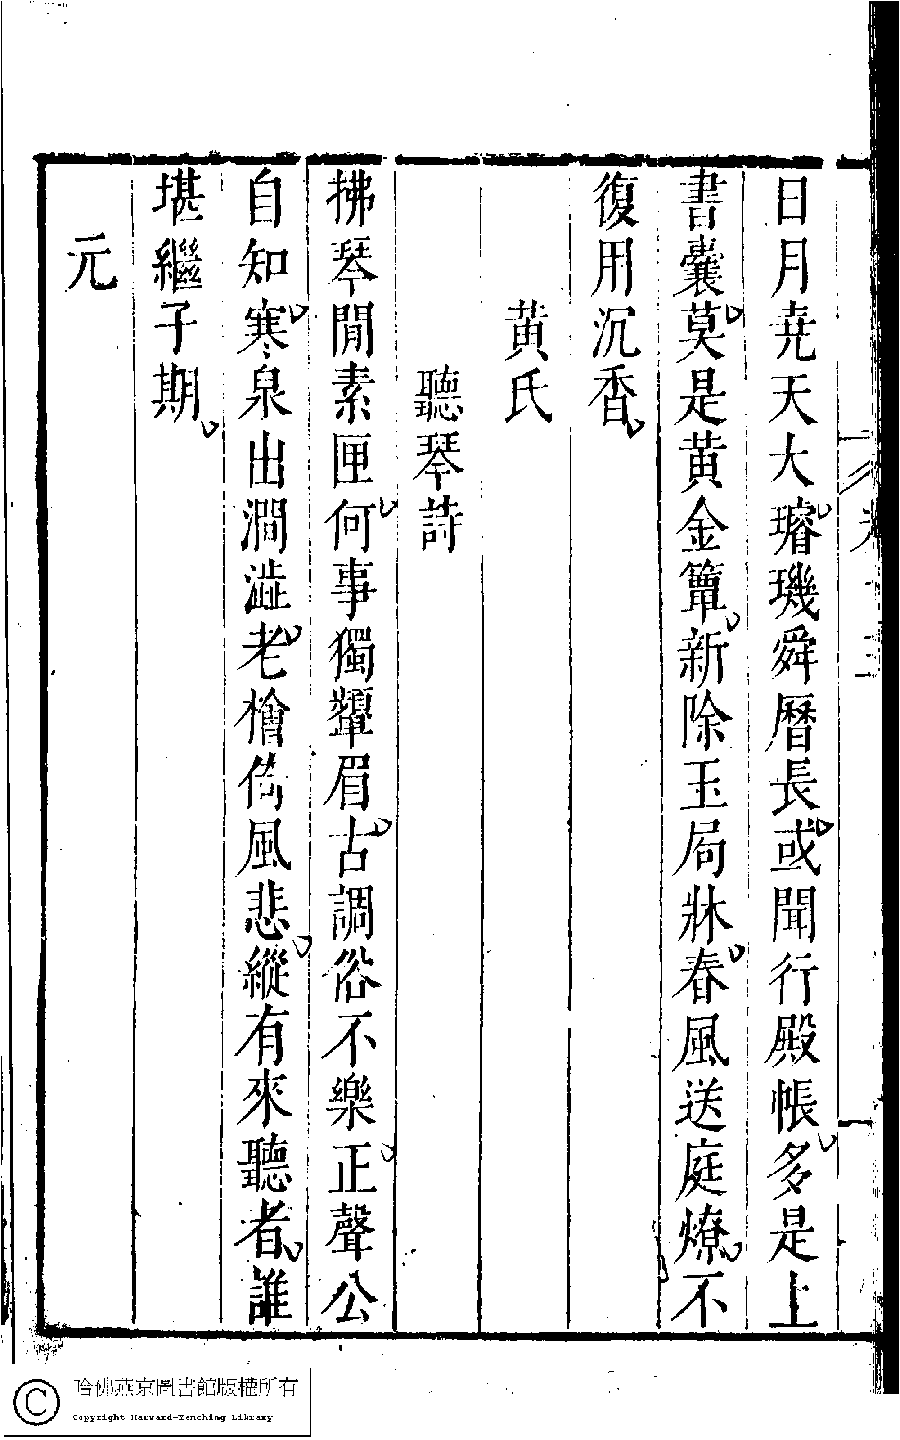 日月堯天大璿璣舜曆長或聞行殿帳多是上
書囊莫是黃金簞新除玉局牀春風送庭燎不
復用沉香
黃氏
聽琴詩
拂琴開素匣何事獨顰眉古調俗不樂正聲公
自知寒泉出澗澁老檜倚風悲縱有來聽者誰
堪繼子期
元
哈佛燕京圖書館版權所有
Copyright Harvard-Yenching Library